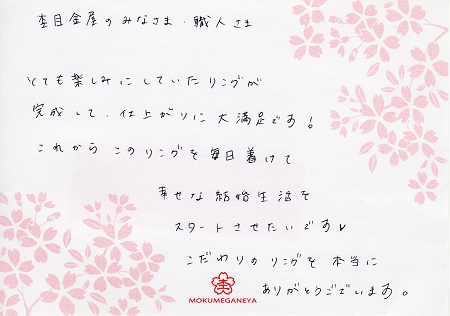 杢目金屋のみなさま・職人さま
とても楽しみにしていたリングが
完成して、仕上がりに大満足です!
これからこのリングを毎日着けて
幸せな結婚生活を
スタートさせたいです♥
こだわりのリングを本当に
ありがとうございます。
杢
MOKUMEGANEYA